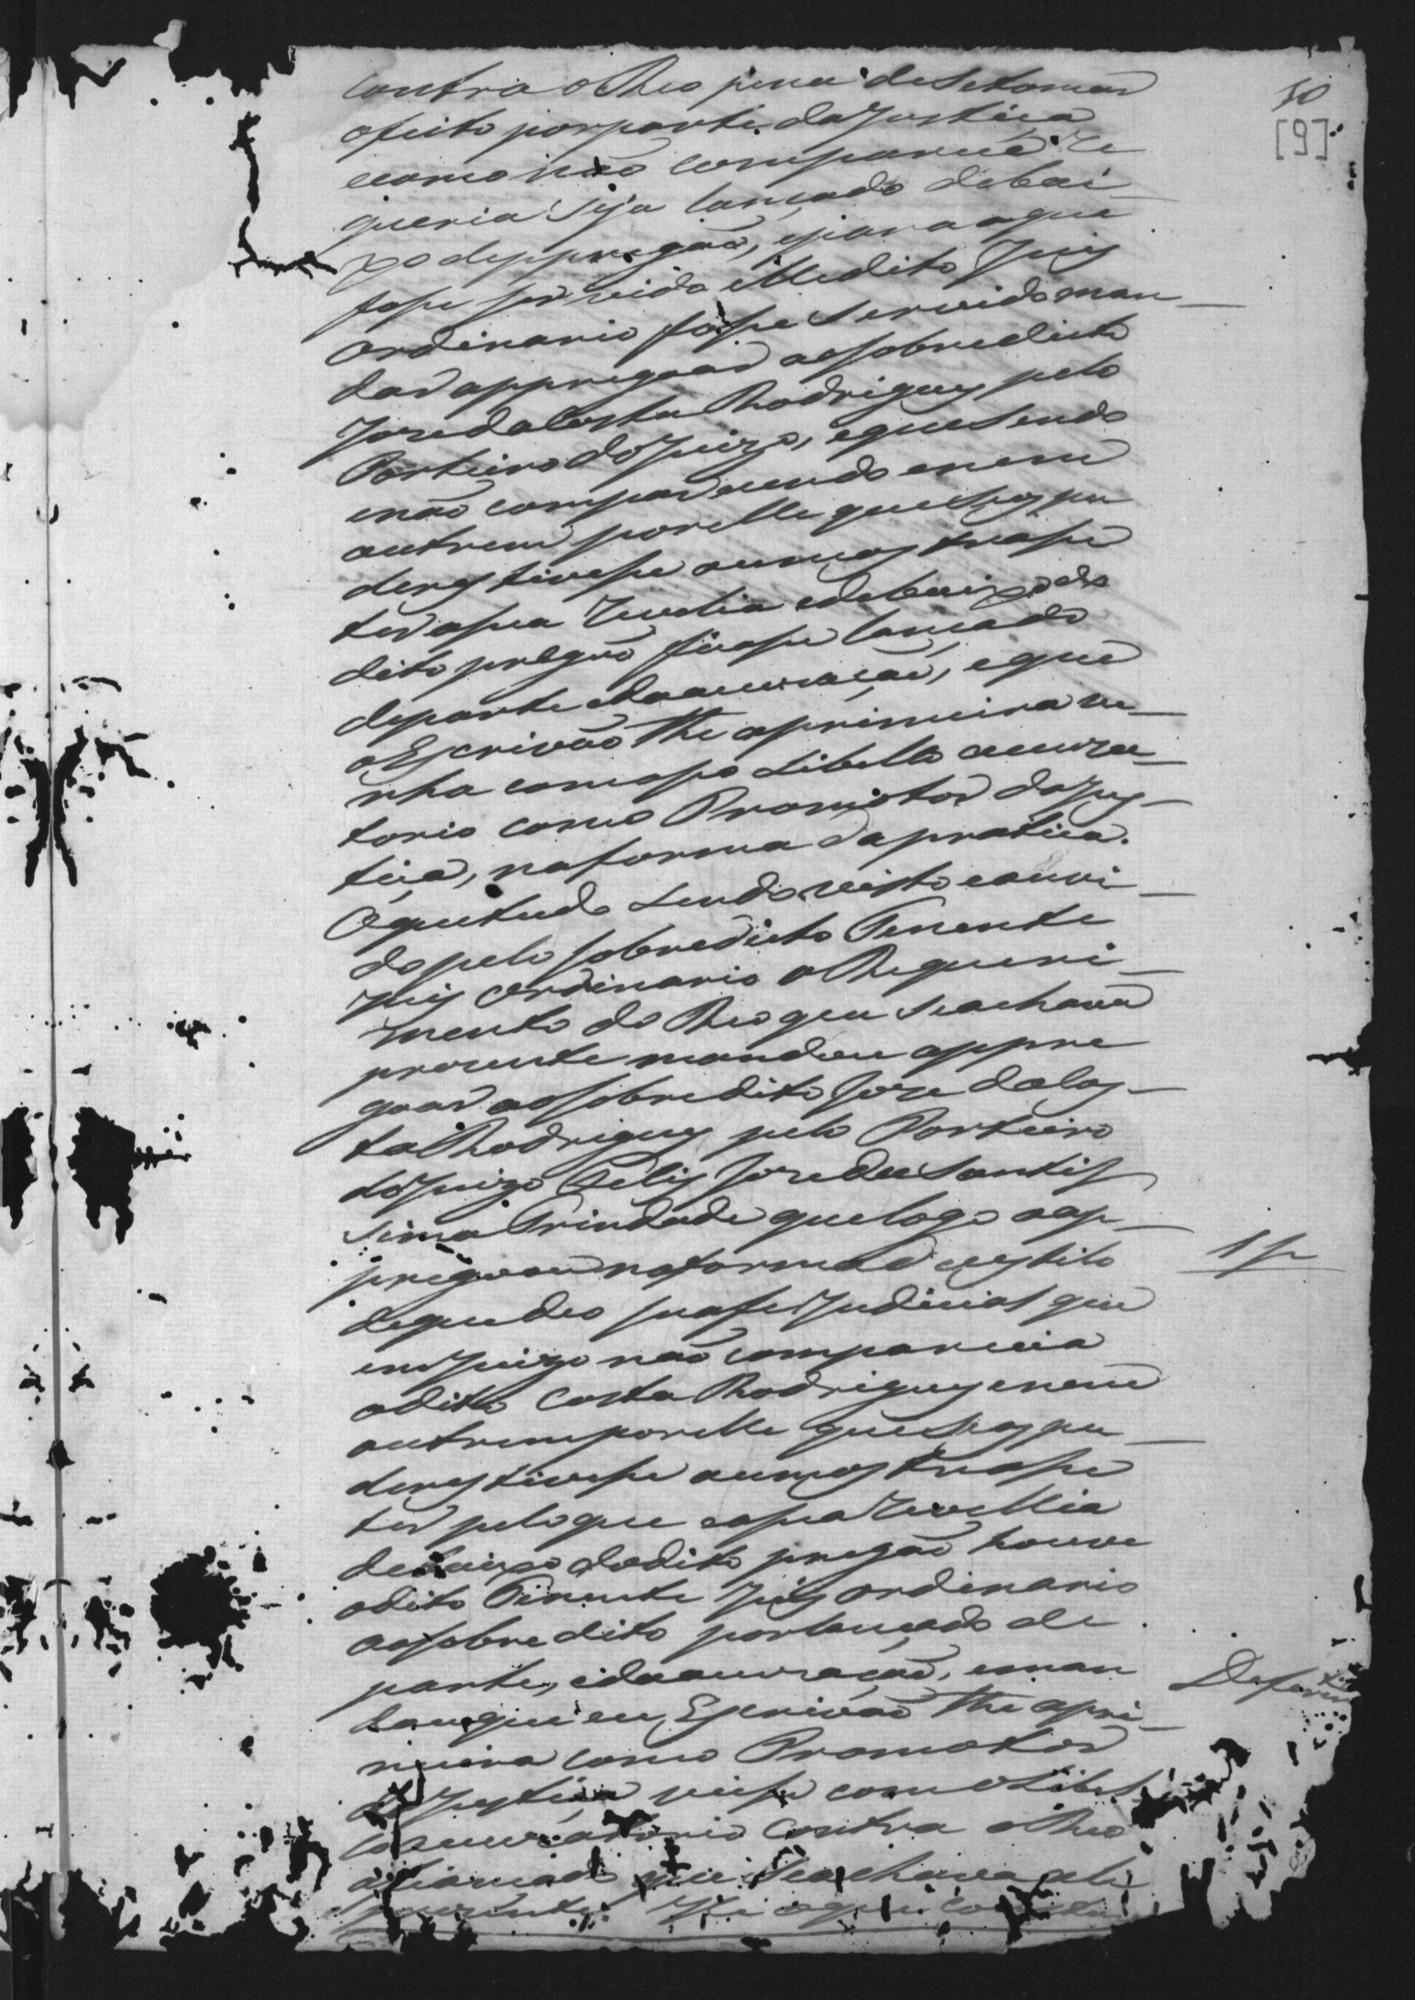 50
[9]
contra o Reo pena de se tomar
ofeito por parte da Justiça
ecomo não comparecê re
queria seja lançado debai
xo depregão, epara que
fosse servido elle dito Juis
ordinario fosse servido man
dar appregoar aosobredicto
Joze da Costa Rodrigues pelo
Porteiro do Juizo, eque sendo
enão comparecendo enem
outrem por elle que seos po
deres tivesse ou mostrasse
ter asua revelia edebaixo do
dito pregão fosse lançado
departe edaaccuzação, eque
oEscrivão lhe aprimeira ve
nha comoseo Libello accuza
torio como Promotor da Jus
tiça, naforma da pratica.
Oque tudo sendo visto eouvi
do pelo sobredicto Tenente
Juis Ordinario o Requeri
mento do Reo que se achava
prezente mandou appre
goar aosobredito Joze da Cos
ta Rodrigues pelo Porteiro
do Juizo Felis Joze da Santis
sima Trindade que logo oap
pregoou naforma do estilo
deque deo sua fé judicial que
em Juizo não comparecia
odito Costa Rodrigues enem
outrem por elle que seos po
deres tivesse ou mostrasse
ter pelo que asua revellia
debaixo do dito pregão houve
odito Tenente Juis ordinario
aosobredito por lançado de
parte, edaaccuzação, eman
dou que eu Escrivão lhe apri
meira como Promotor
da Justiça viesse com o Libel
lo accuzatorio contra o Reo
afiançado que se achava
prezente